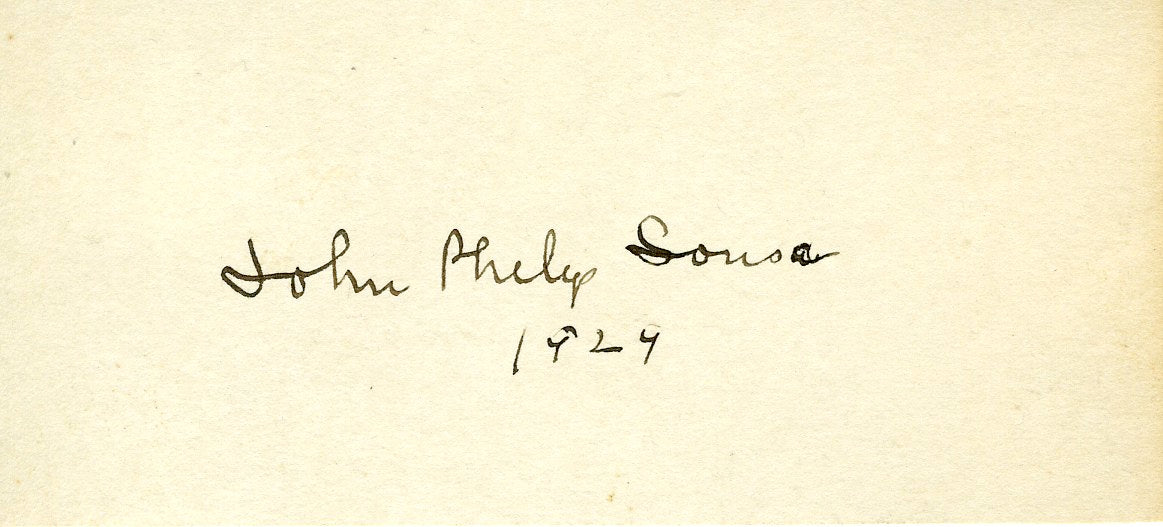 John Philip Sousa
1929